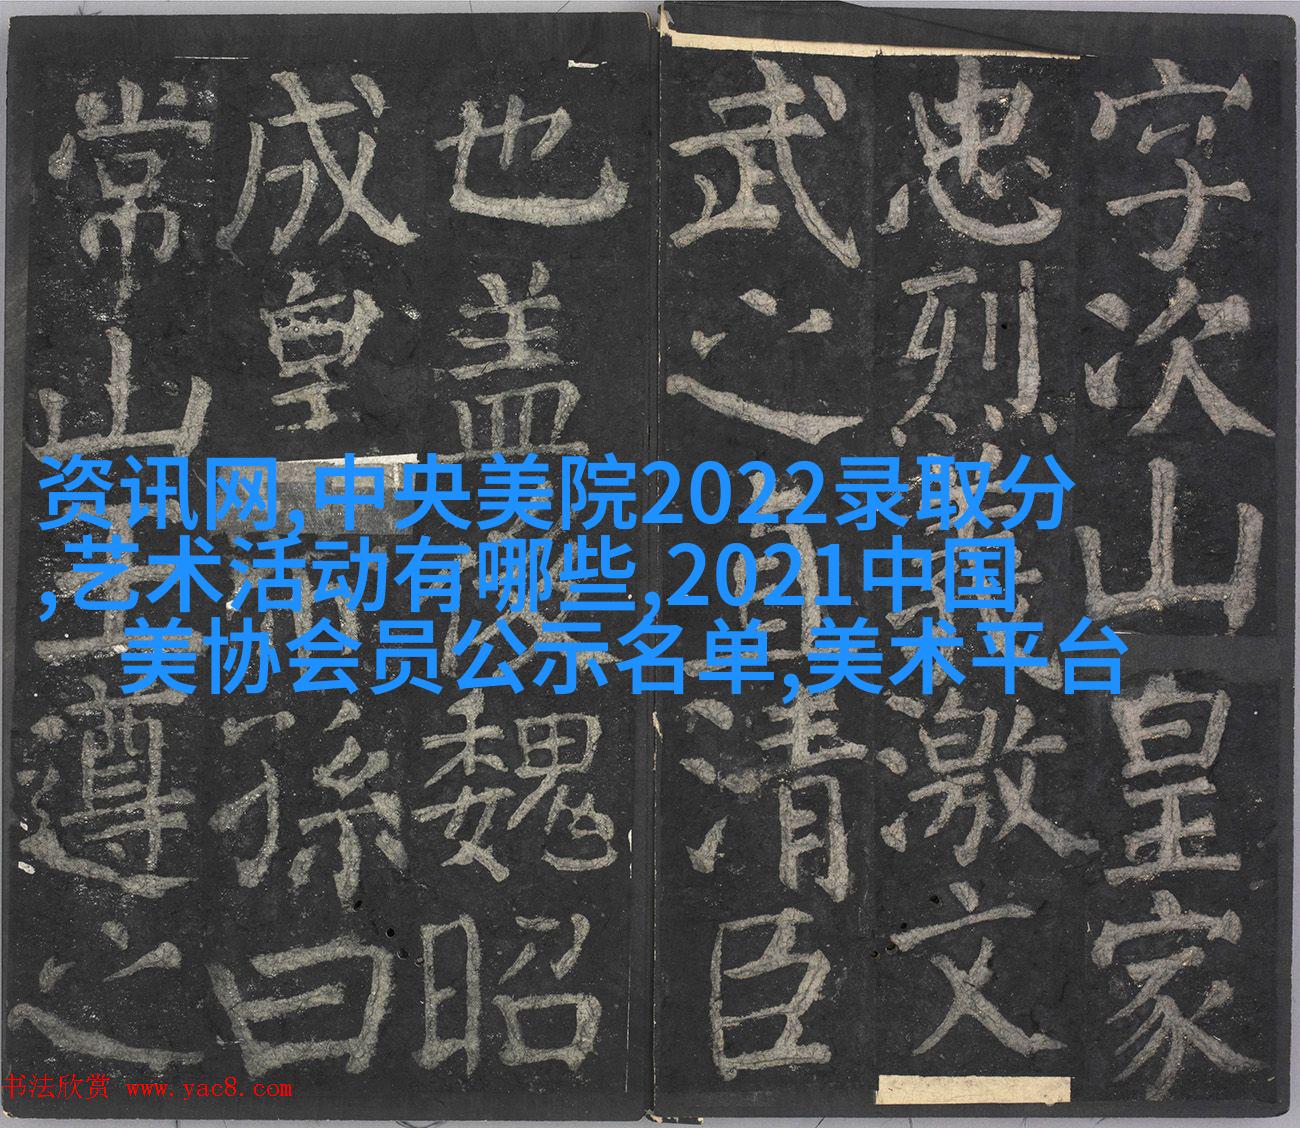 字次山皇家
忠烈義激文
武之直清臣
也盖後魏昭
成皇帝孫曰
常山王遵之
资讯网,中央美院2022录取分
,艺术活动有哪些,2021中国
美协会员公示名单,美术平台
书法欣赏 www.yac8.com